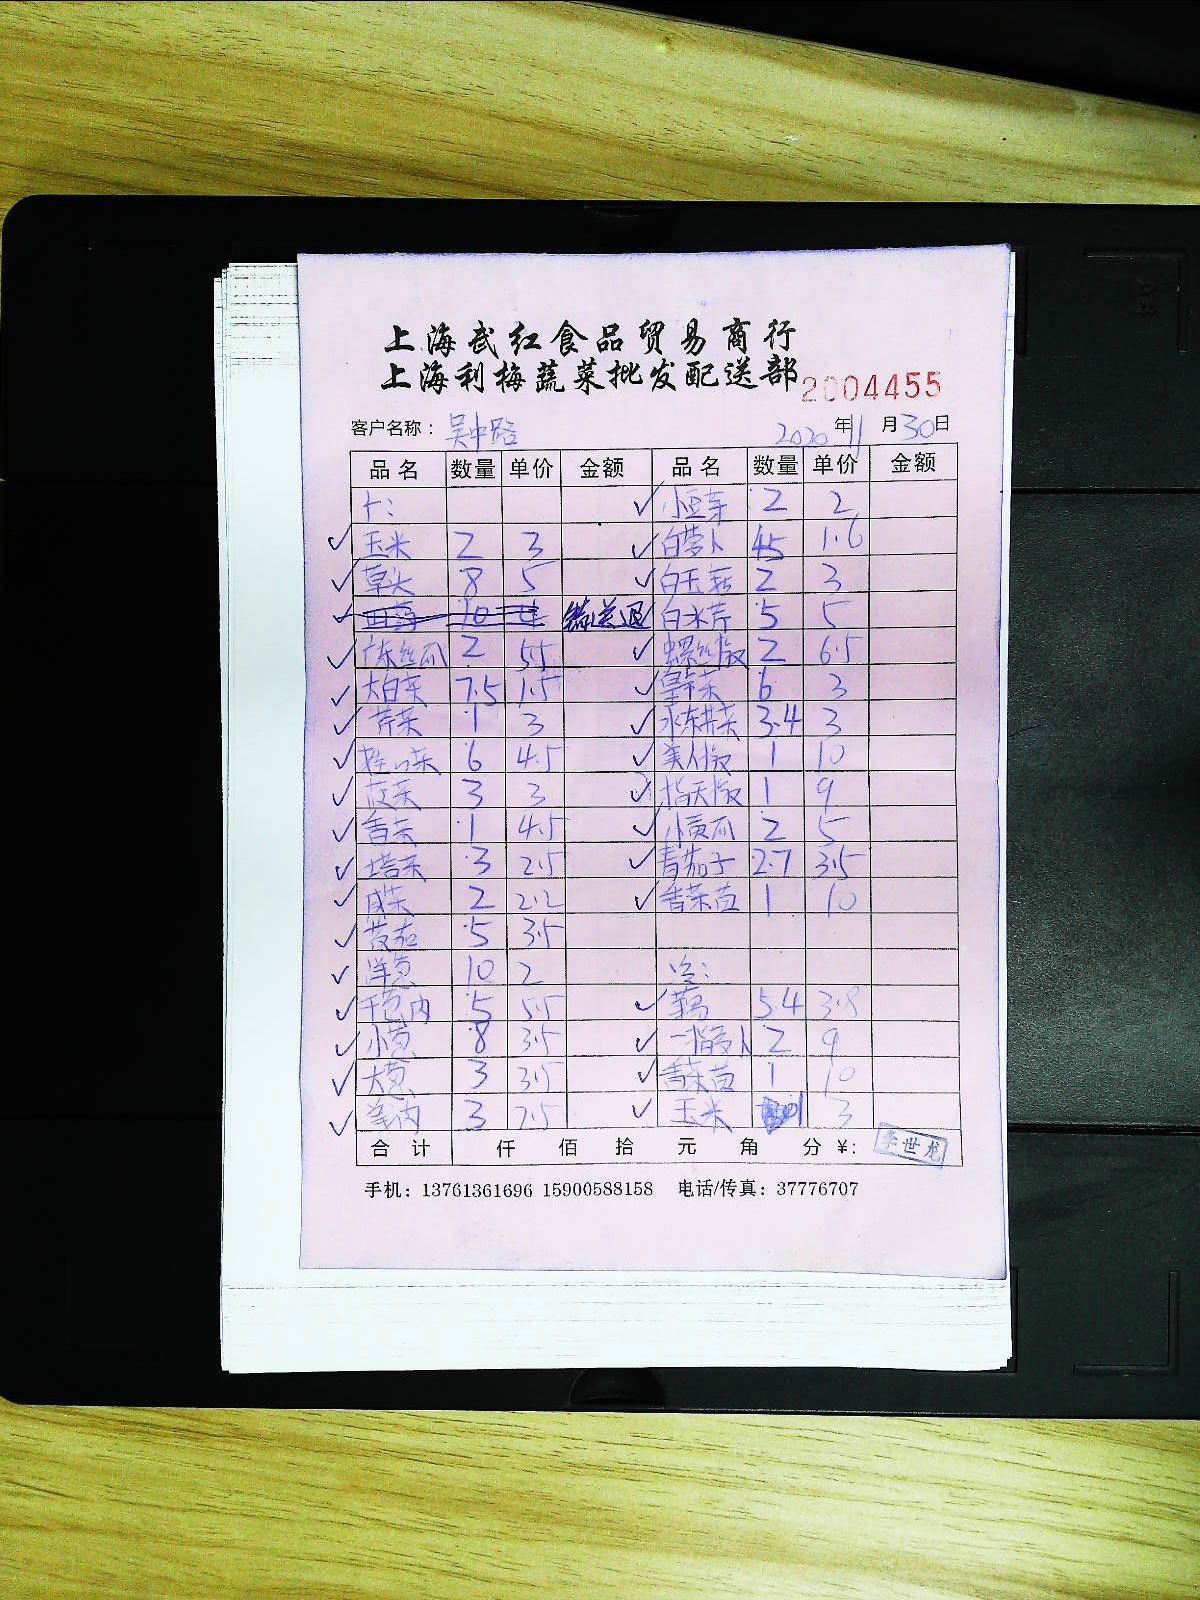 上海武红食品贸易商行
上海利梅蔬菜批发配送部 2004455
客户名称：吴中路 2020年11月30日
品名 数量 单价 金额 品名 数量 单价 金额
√ 小豆芽 2 2
√ 玉米 2 3 √ 白萝卜 45 1.6
√ 草头 8 5 √ 白玉菇 2 3
√ 10 4 √ 白水芹 5 5
√ 广东丝瓜 2 5.5 √ 螺丝椒 2 6.5
√ 大白菜 7.5 1.5 √ 6 3
√ 芹菜 1 3 √ 水东芥菜 3.4 3
√ 6 4.5 √ 美人椒 1 10
√ 菠菜 3 3 √ 指天椒 1 9
√ 香菜 1 4.5 √ 小黄瓜 2 5
√ 塔菜 3 2.5 √ 青茄子 2.7 3.5
√ 咸菜 2 2.2 √ 香菜苗 1 10
√ 5 3.5
√ 10 2 冷：
√ 5 5.5 √ 藕 5.4 3.8
√ 8 3.5 √ 一指萝卜 2 9
√ 3 3.5 √ 香菜苗 1 10
√ 3 7.5 √ 玉米 3
合计 仟 佰 拾 元 角 分 ¥： 李世龙
手机：13761361696 15900588158 电话/传真：37776707